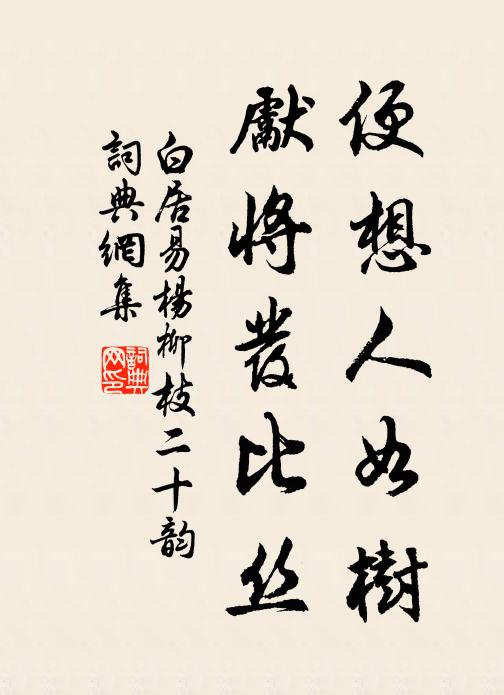 便想人如樹
獻將發比丝
白居易楊柳枝二十韵
詞典網集
詞典网印